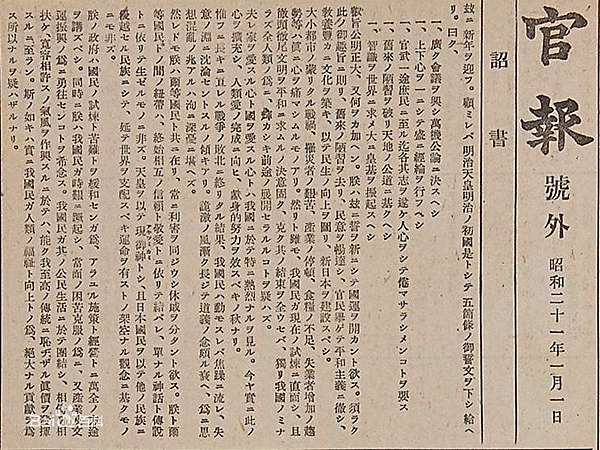 官報
號外
昭和二十一年一月一日
詔書
玆ニ新年ヲ迎フ。顧ミレバ明治天皇明治ノ初國是トシテ五箇條ノ御誓文ヲ下シ給ヘ
リ。曰ク、
一、廣ク會議ヲ興シ萬機公論ニ決スヘシ
一、上下心ヲ一ニシテ盛ニ經綸ヲ行フヘシ
一、官武一途庶民ニ至ル迄各其志ヲ遂ケ人心ヲシテ倦マサラシメンコトヲ要ス
一、舊來ノ陋習ヲ破リ天地ノ公道ニ基クヘシ
一、智識ヲ世界ニ求メ大ニ皇基ヲ振起スヘシ
叡旨公明正大、又何ヲカ加ヘン。朕ハ玆ニ誓ヲ新ニシテ國運ヲ開カント欲ス。須ラク
此ノ御趣旨ニ則リ、舊來ノ陋習ヲ去リ、民意ヲ暢達シ、官民擧ゲテ平和主義ニ徹シ、
教養豐カニ文化ヲ築キ、以テ民生ノ向上ヲ圖リ、新日本ヲ建設スベシ。
大小都市ノ蒙リタル戰禍、罹災者ノ艱苦、產業ノ停頓、食糧ノ不足、失業者增加ノ趨
勢等ハ眞ニ心ヲ痛マシムルモノアリ。然リト雖モ、我國民ガ現在ノ試煉ニ直面シ、且
徹頭徹尾文明ヲ平和ニ求ムルノ決意固ク、克ク其ノ結束ヲ全ウセバ、獨リ我國ノミナ
ラズ全人類ノ爲ニ、輝カシキ前途ノ展開セラルルコトヲ疑ハズ。
夫レ家ヲ愛スル心ト國ヲ愛スル心トハ我國ニ於テ特ニ熱烈ナルヲ見ル。今ヤ實ニ此ノ
心ヲ擴充シ、人類愛ノ完成ニ向ヒ、獻身的努力ヲ效スベキノ秋ナリ。
惟フニ長キニ亘レル戰爭ノ敗北ニ終リタル結果、我國民ハ動モスレバ焦躁ニ流レ、失
意ノ淵ニ沈淪セントスルノ傾キアリ。詭激ノ風漸ク長ジテ道義ノ念頗ル衰ヘ、爲ニ思
想混亂ノ兆アルハ洵ニ深憂ニ堪ヘズ。
然レドモ朕ハ爾等國民ト共ニ在リ、常ニ利害ヲ同ジウシ休戚ヲ分タント欲ス。朕ト爾
等國民トノ間ノ紐帶ハ、終始相互ノ信賴ト敬愛トニ依リテ結バレ、單ナル神話ト傳說
トニ依リテ生ゼルモノニ非ズ。天皇ヲ以テ現御神トシ、且日本國民ヲ以テ他ノ民族ニ
優越セル民族ニシテ、延テ世界ヲ支配スベキ運命ヲ有ストノ架空ナル觀念ニ基クモノ
ニモ非ズ。
朕ノ政府ハ國民ノ試煉ト苦難トヲ緩和センガ爲、アラユル施策ト經營トニ萬全ノ方途
ヲ講ズベシ。同時ニ朕ハ我國民ガ時艱ニ蹶起シ、當面ノ困苦克服ノ爲ニ、又產業及文
運振興ノ爲ニ勇往センコトヲ希念ス。我國民ガ其ノ公民生活ニ於テ團結シ、相倚リ相
扶ケ、寬容相許スノ氣風ヲ作興スルニ於テハ、能ク我至高ノ傳統ニ恥ヂザル眞價ヲ發揮
スルニ至ラン。斯ノ如キハ實ニ我國民ガ人類ノ福祉ト向上トノ爲、絕大ナル貢獻ヲ爲
ス所以ナルヲ疑ハザルナリ。